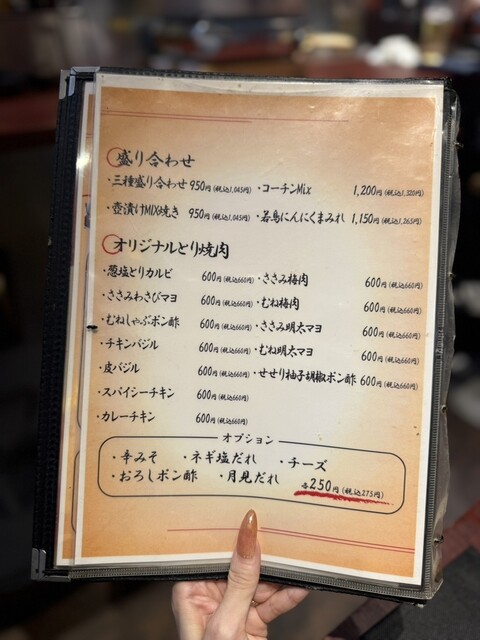 盛り合わせ
・三種盛り合わせ 950円(税込1,045円) ・コーチンMix 1,200円(税込1,320円)
・壺漬けMIX焼き 950円(税込1,045円) ・若鳥にんにくまみれ 1,150円(税込1,265円)
オリジナルとり焼肉
・葱塩とりカルビ 600円(税込660円) ・ささみ梅肉 600円(税込660円)
・ささみわさびマヨ 600円(税込660円) ・むね梅肉 600円(税込660円)
・むねしゃぶポン酢 600円(税込660円) ・ささみ明太マヨ 600円(税込660円)
・チキンバジル 600円(税込660円) ・むね明太マヨ 600円(税込660円)
・皮バジル 600円(税込660円) ・せせり柚子胡椒ポン酢 600円(税込660円)
・スパイシーチキン 600円(税込660円)
・カレーチキン 600円(税込660円)
オプション
・辛みそ ・ネギ塩だれ ・チーズ
・おろしポン酢 ・月見だれ
各250円(税込275円)